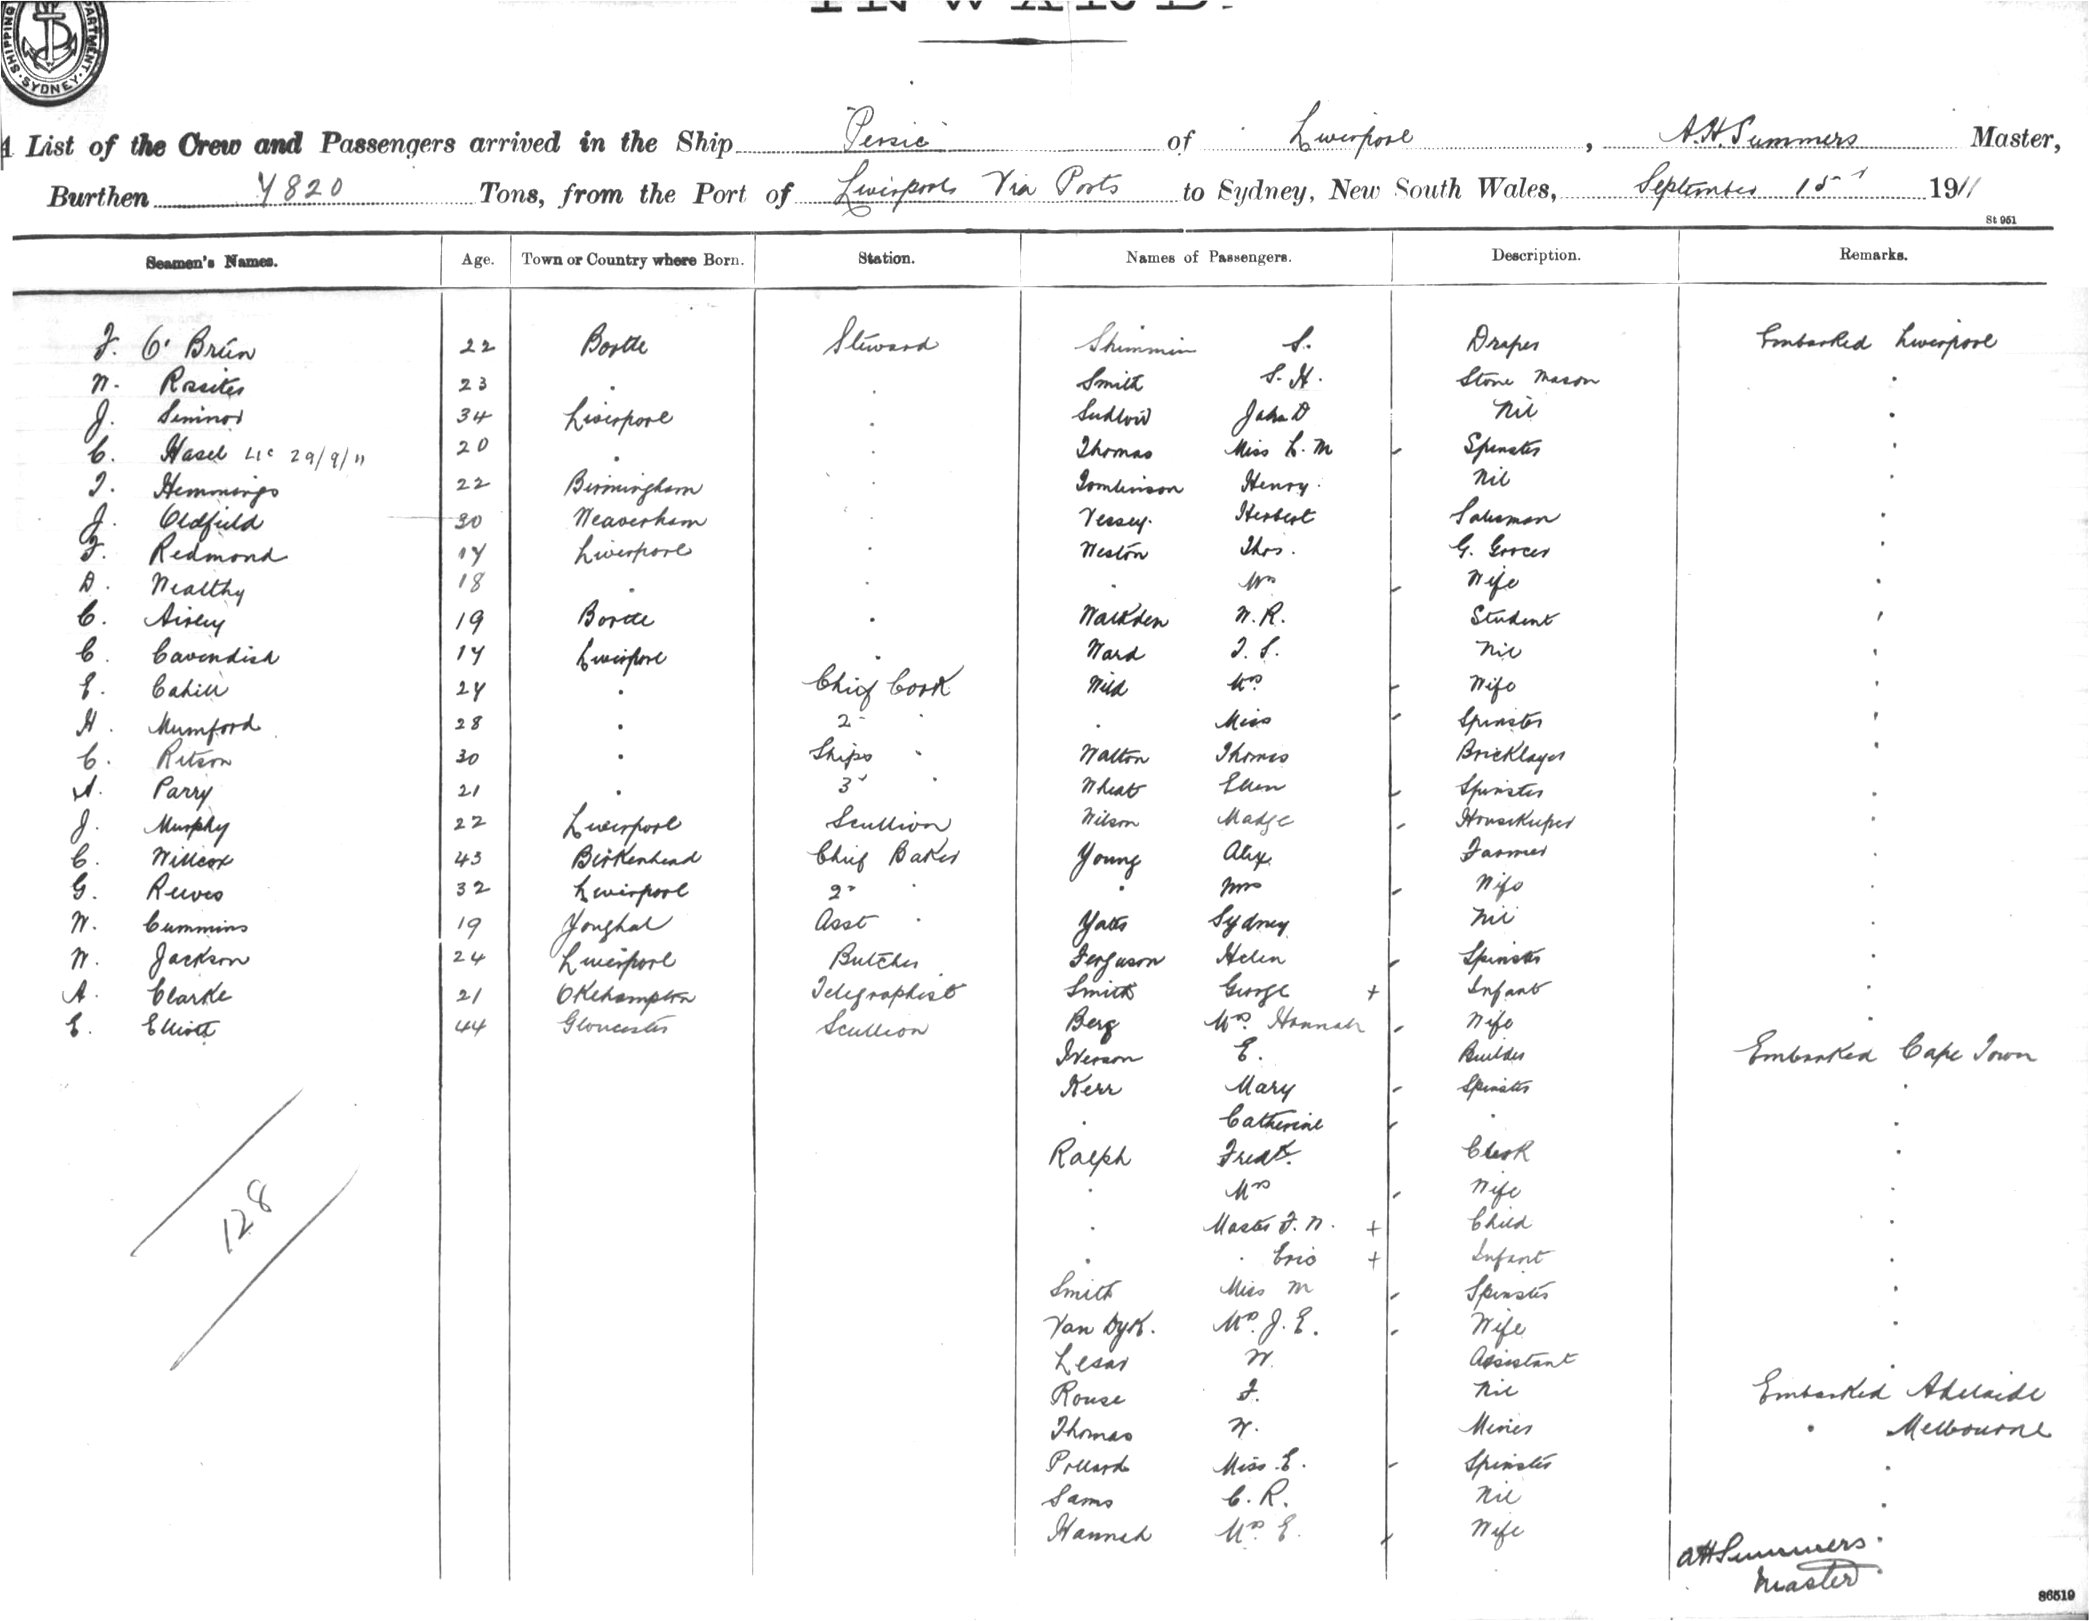 SHIPPING DEPARTMENT. SYDNEY.
INWARD.
A List of the Crew and Passengers arrived in the Ship "Persic" of Liverpool, A.H. Summers Master,
Burthen 7820 Tons, from the Port of Liverpool Via Ports to Sydney, New South Wales, September 15th 1911
St 951
Seamen's Names. Age. Town or Country where Born. Station. Names of Passengers. Description. Remarks.
J. O'Brien 22 Bootle Steward Shimmin S. Draper Embarked Liverpool
W. Rossiter 23 " " Smith S. H. Stone Mason "
J. 34 Liverpool " Sudlow John D Nil "
C. Hasel 29/9/11 20 " " Thomas Miss L. M Spinster "
T. Hemmings 22 Birmingham " Tomlinson Henry Nil "
J. Oldfield 30 Weaverham " Vessey Herbert Salesman "
F. Redmond 17 Liverpool " Weston Thos. G. Grocer "
D. Wealthy 18 " " " Mrs Wife "
C. Airey 19 Bootle " Walkden W. R. Student "
C. Cavendish 17 Liverpool " Ward T. S. Nil "
E. Cahill 27 " Chief Cook Wild Mrs Wife "
H. Mumford 28 " 2nd " " Miss Spinster "
C. Ritson 30 " Ships " Walton Thomas Bricklayer "
A. Parry 21 " 3rd " Wheat Ellen Spinster "
J. Murphy 22 Liverpool Scullion Wilson Madge Housekeeper "
C. Willcox 43 Birkenhead Chief Baker Young Alex Farmer "
G. Reeves 32 Liverpool 2nd " " Mrs Wife "
W. Cummins 19 Youghal Asst " Yates Sydney Nil "
W. Jackson 24 Liverpool Butcher Ferguson Helen Spinster "
A. Clarke 21 Okehampton Telegraphist Smith George + Infant "
E. Elliott 44 Gloucester Scullion Berg Mrs. Hannah Wife "
Iverson E. Builder Embarked Cape Town
Kerr Mary Spinster "
" Catherine " "
Ralph Fredk. Clerk "
" Mrs Wife "
" Master F. W. + Child "
" " Eric + Infant "
Smith Miss M Spinster "
Van Dyk. Mrs. J. E. Wife "
Lesar W. Assistant "
Rouse F. Nil Embarked Adelaide
Thomas W. Miner " Melbourne
Pollard Miss E. Spinster "
Sams C. R. Nil "
Hannah Mrs. E. Wife "
128
AH Summers
Master
86519